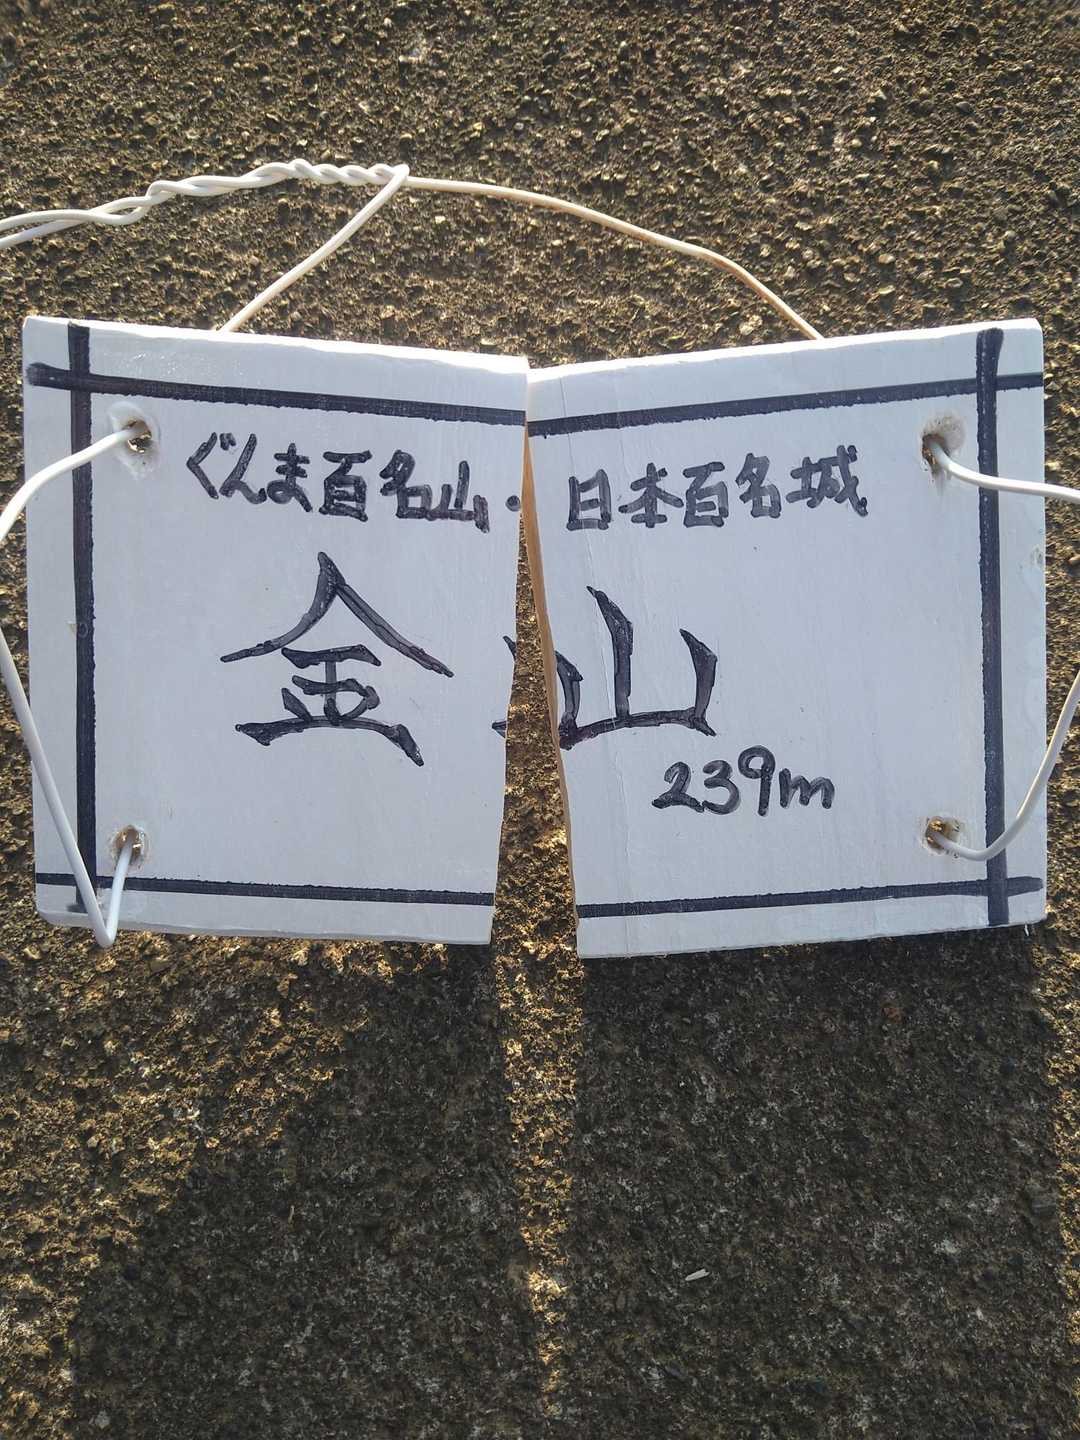 ぐんま百名山・日本百名城
金山
239m